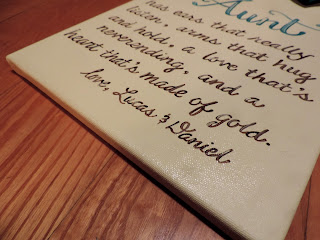 Aunt
has ears that really
listen, arms that hug
and hold, a love that's
neverending, and a
heart that's made of gold.
love, Lucas & Daniel